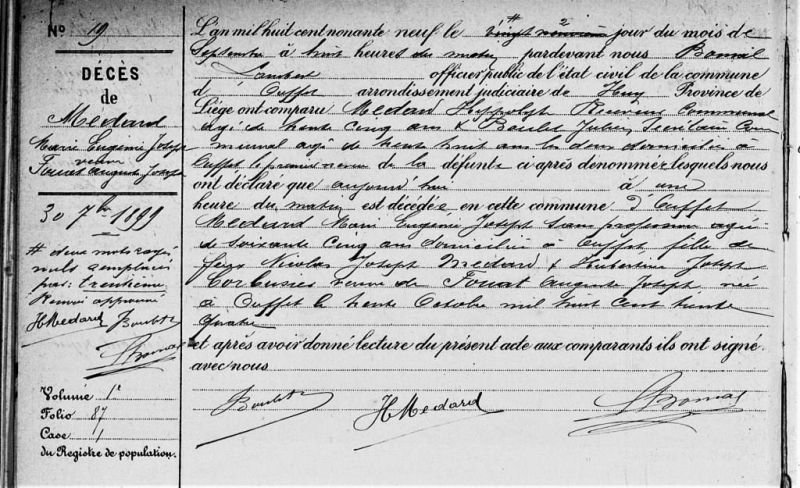 No 19
DÉCÈS
de
Medard
Marie Eugénie Joseph
veuve
Fouat Auguste Joseph
30 7bre 1899
# deux mots rayés
nuls remplacés
par: trentième
Renvoi approuvé
HMedard
Volume 1r
Folio 87
Case 1
du Registre de population.
L'an mil huit cent nonante neuf le # vingt neuvième jour du mois de
Septembre à huit heures du matin pardevant nous
Lambert officier public de l'état civil de la commune
d' Ouffet arrondissement judiciaire de Huy Province de
Liége ont comparu Medard Hyppolyte Receveur Communal
âgé de trente cinq ans & Julien, Secrétaire Com
munal âgé de trente huit ans les deux domiciliés à
Ouffet le premier neveu de la défunte ci après dénommée lesquels nous
ont déclaré que aujourd'hui à une
heure du matin est décédée en cette commune d'Ouffet
Medard Marie Eugénie Joseph sans profession agée
de soixante cinq ans domiciliée à Ouffet, fille de
feus Nicolas Joseph Medard & Hubertine Joseph
veuve de Fouat Auguste Joseph, née
à Ouffet le trente Octobre mil huit cent trente
quatre
et après avoir donné lecture du présent acte aux comparants ils ont signé
avec nous
HMedard